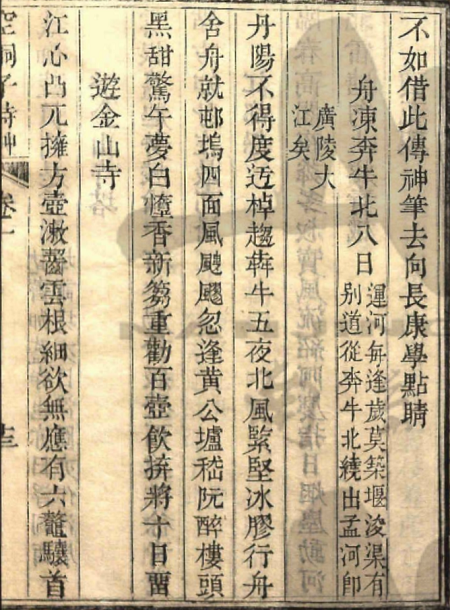 不如借此傳神筆去向長康學點睛
舟凍奔牛北八日
運河毎逢歲莫築堰浚渠有
別道從奔牛北繞出孟河卽
廣陵大
江矣
丹陽不得度迃棹趨犇牛五夜北風緊堅冰膠行舟
舍舟就邨塢四面風颼飀忽逢黃公壚嵇阮醉樓頭
黑甜驚午夢白墮香新蒭重勸百壺飲拚將十日畱
遊金山寺
江心凸兀擁方壺漱齧雲根細欲無應有六鼇驤首
卷一